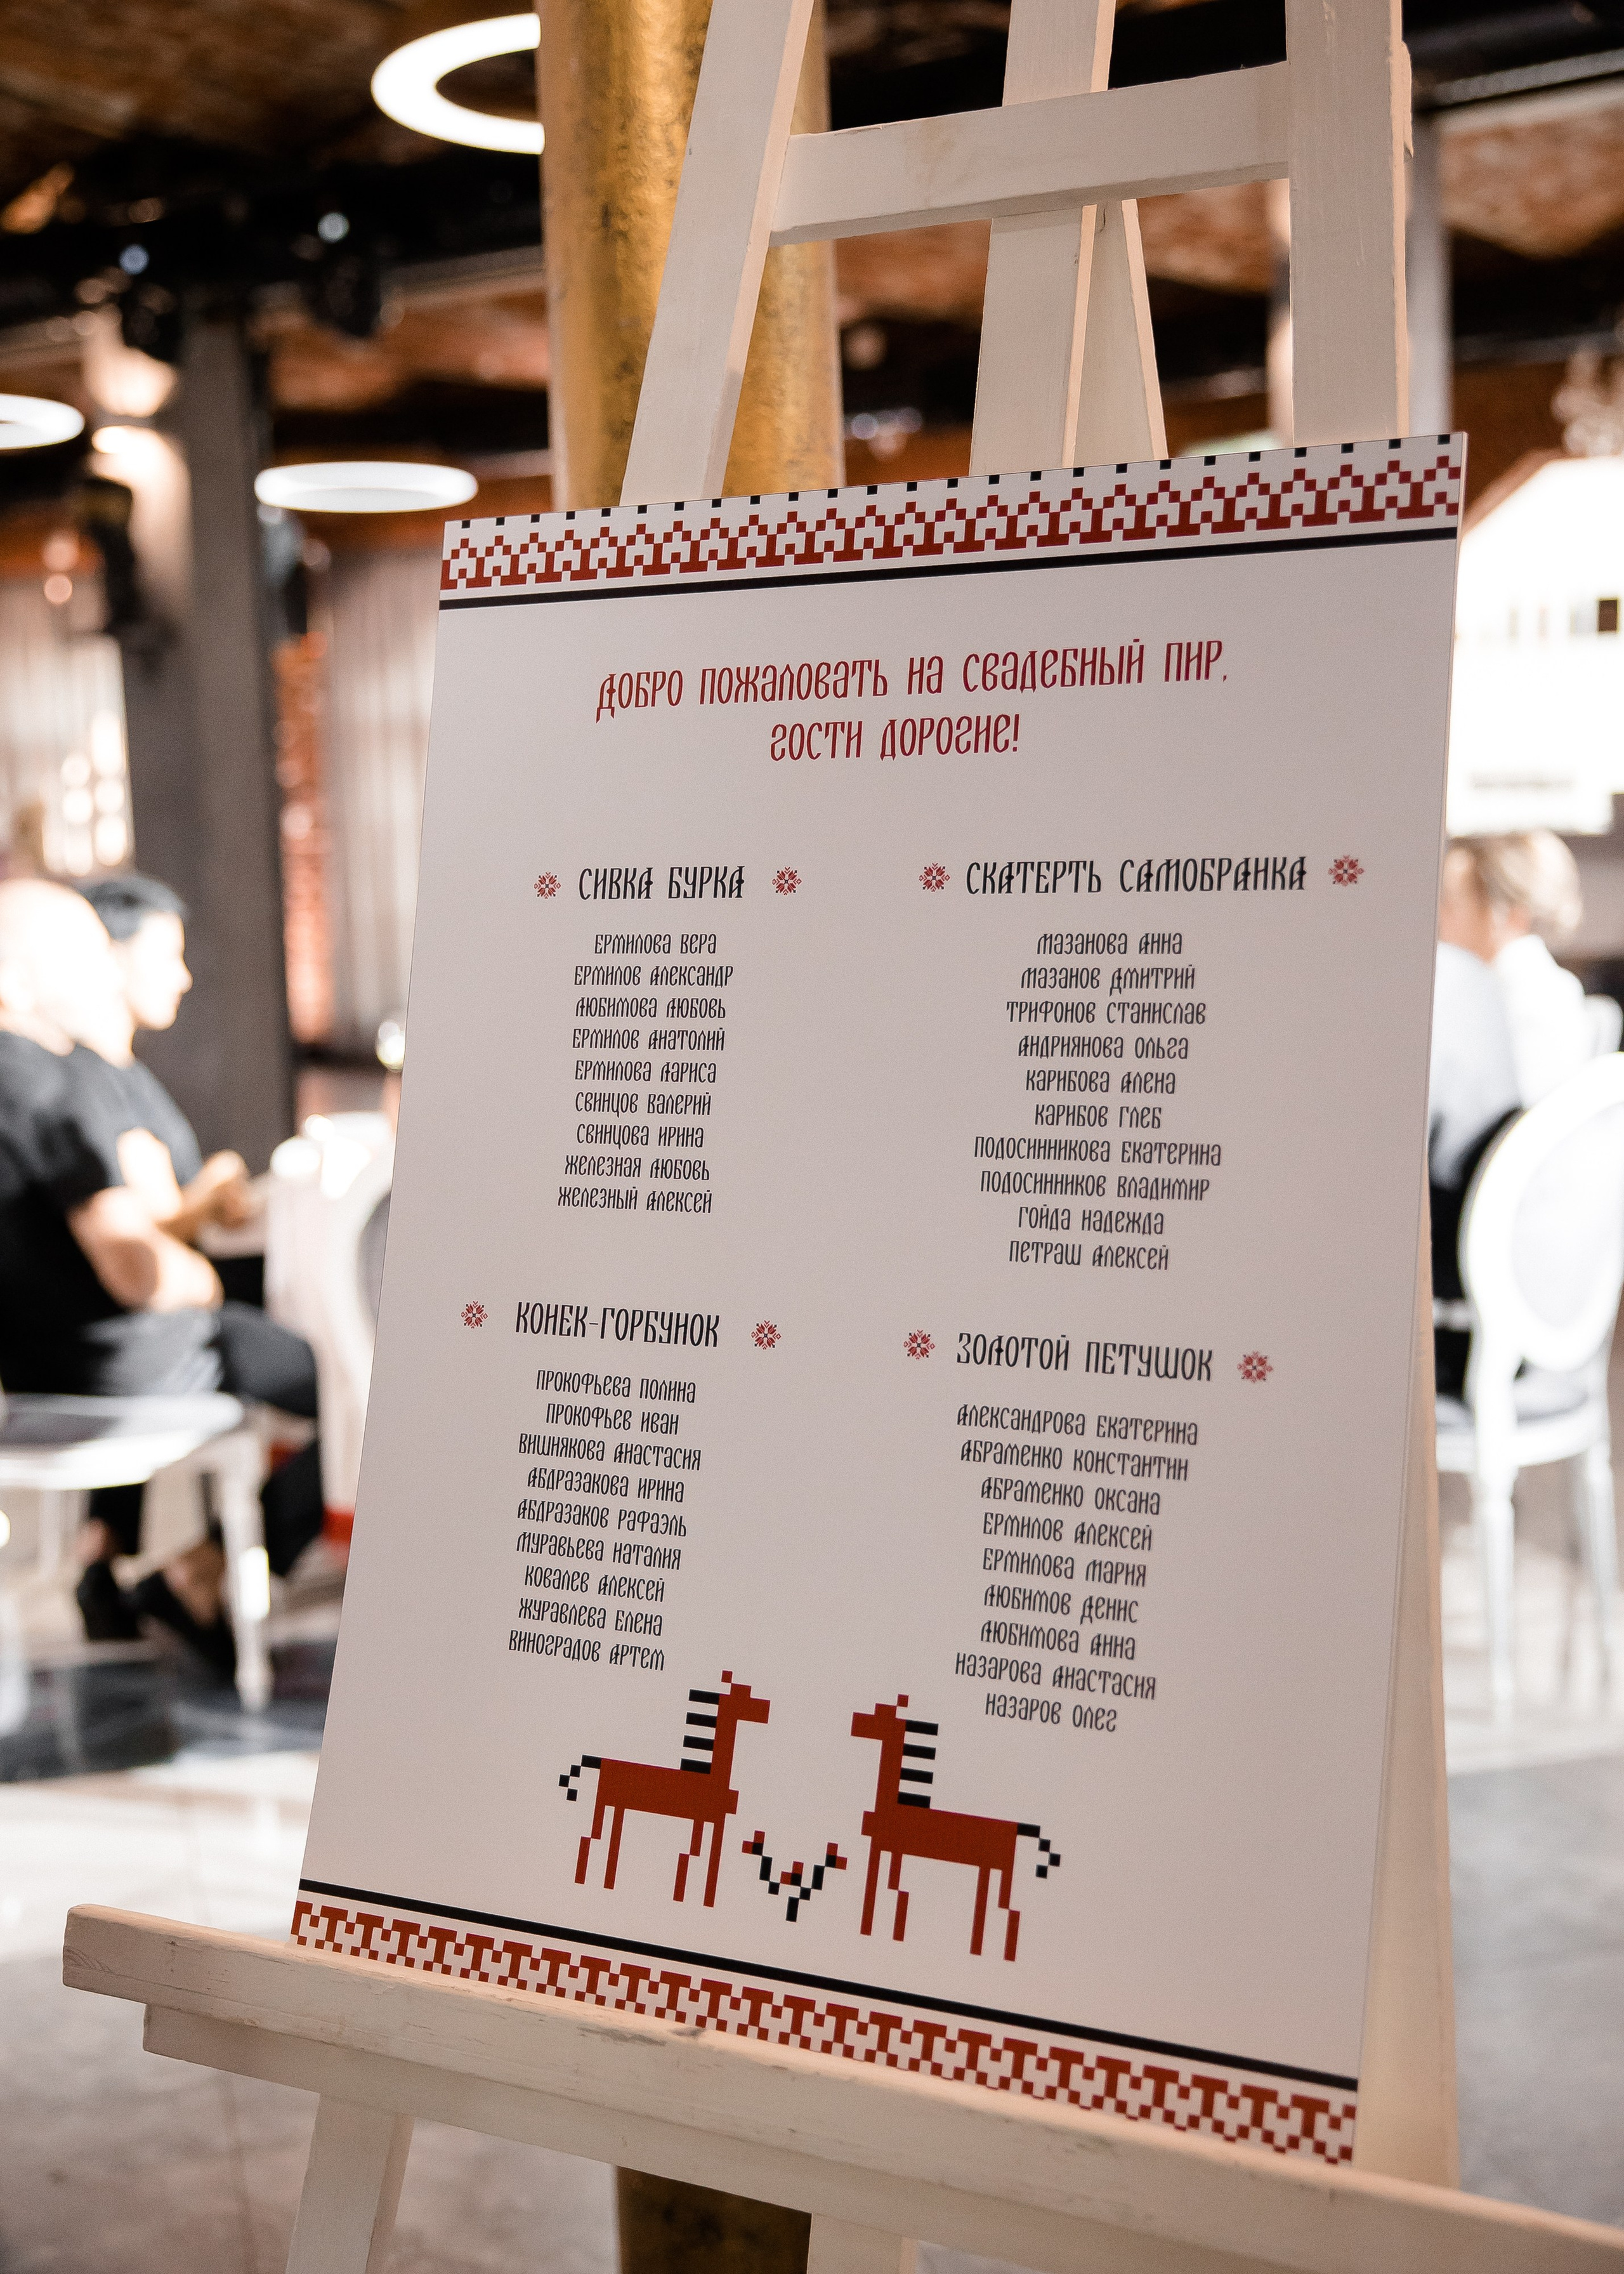 ДОБРО ПОЖАЛОВАТЬ НА СВАДЕБНЫЙ ПИР,
ГОСТИ ДОРОГИЕ!
СИВКА БУРКА
ЕРМИЛОВА ВЕРА
ЕРМИЛОВ АЛЕКСАНДР
ЛЮБИМОВА ЛЮБОВЬ
ЕРМИЛОВ АНАТОЛИЙ
ЕРМИЛОВА ЛАРИСА
СВИНЦОВ ВАЛЕРИЙ
СВИНЦОВА ИРИНА
ЖЕЛЕЗНАЯ ЛЮБОВЬ
ЖЕЛЕЗНЫЙ АЛЕКСЕЙ
СКАТЕРТЬ САМОБРАНКА
МАЗАНОВА АННА
МАЗАНОВ ДМИТРИЙ
ТРИФОНОВ СТАНИСЛАВ
АНДРИЯНОВА ОЛЬГА
КАРИБОВА АЛЕНА
КАРИБОВ ГЛЕБ
ПОДОСИННИКОВА ЕКАТЕРИНА
ПОДОСИННИКОВ ВЛАДИМИР
ГОЙДА НАДЕЖДА
ПЕТРАШ АЛЕКСЕЙ
КОНЕК-ГОРБУНОК
ПРОКОФЬЕВА ПОЛИНА
ПРОКОФЬЕВ ИВАН
ВИШНЯКОВА АНАСТАСИЯ
АБДРАЗАКОВА ИРИНА
АБДРАЗАКОВ РАФАЭЛЬ
МУРАВЬЕВА НАТАЛИЯ
КОВАЛЕВ АЛЕКСЕЙ
ЖУРАВЛЕВА ЕЛЕНА
ВИНОГРАДОВ АРТЕМ
ЗОЛОТОЙ ПЕТУШОК
АЛЕКСАНДРОВА ЕКАТЕРИНА
АБРАМЕНКО КОНСТАНТИН
АБРАМЕНКО ОКСАНА
ЕРМИЛОВ АЛЕКСЕЙ
ЕРМИЛОВА МАРИЯ
ЛЮБИМОВ ДЕНИС
ЛЮБИМОВА АННА
НАЗАРОВА АНАСТАСИЯ
НАЗАРОВ ОЛЕГ